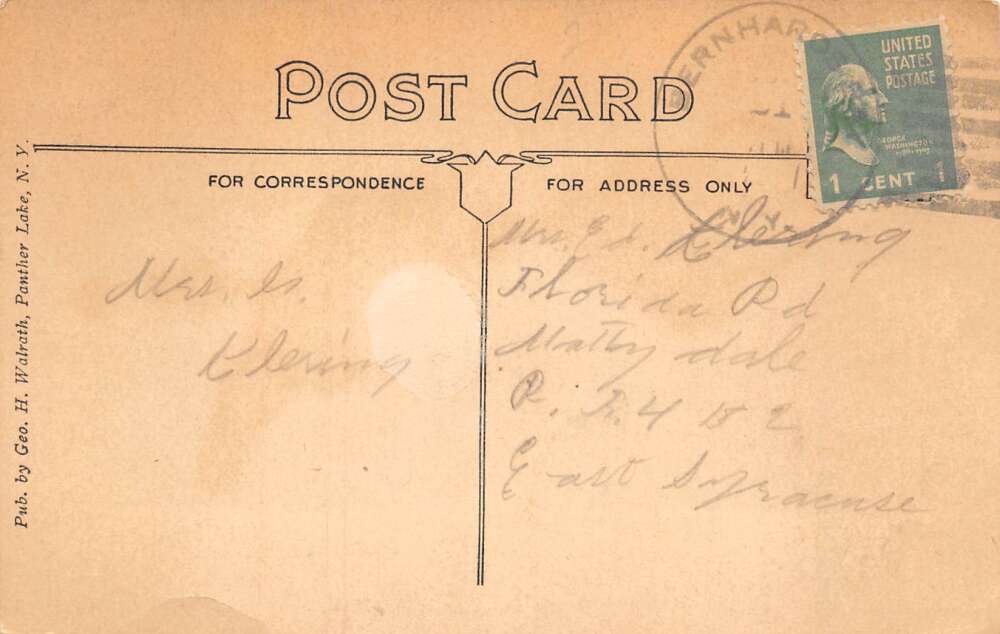 POST CARD
FOR CORRESPONDENCE
FOR ADDRESS ONLY
Pub. by Geo. H. Walrath, Panther Lake, N. Y.
BERNHARD
UNITED
STATES
POSTAGE
GEORGE
WASHINGTON
1 CENT 1
Mrs. G.
Klering
Mrs. Ed. Klering
Florida Rd
Matty dale
R. F. 4 D 2
East Syracuse